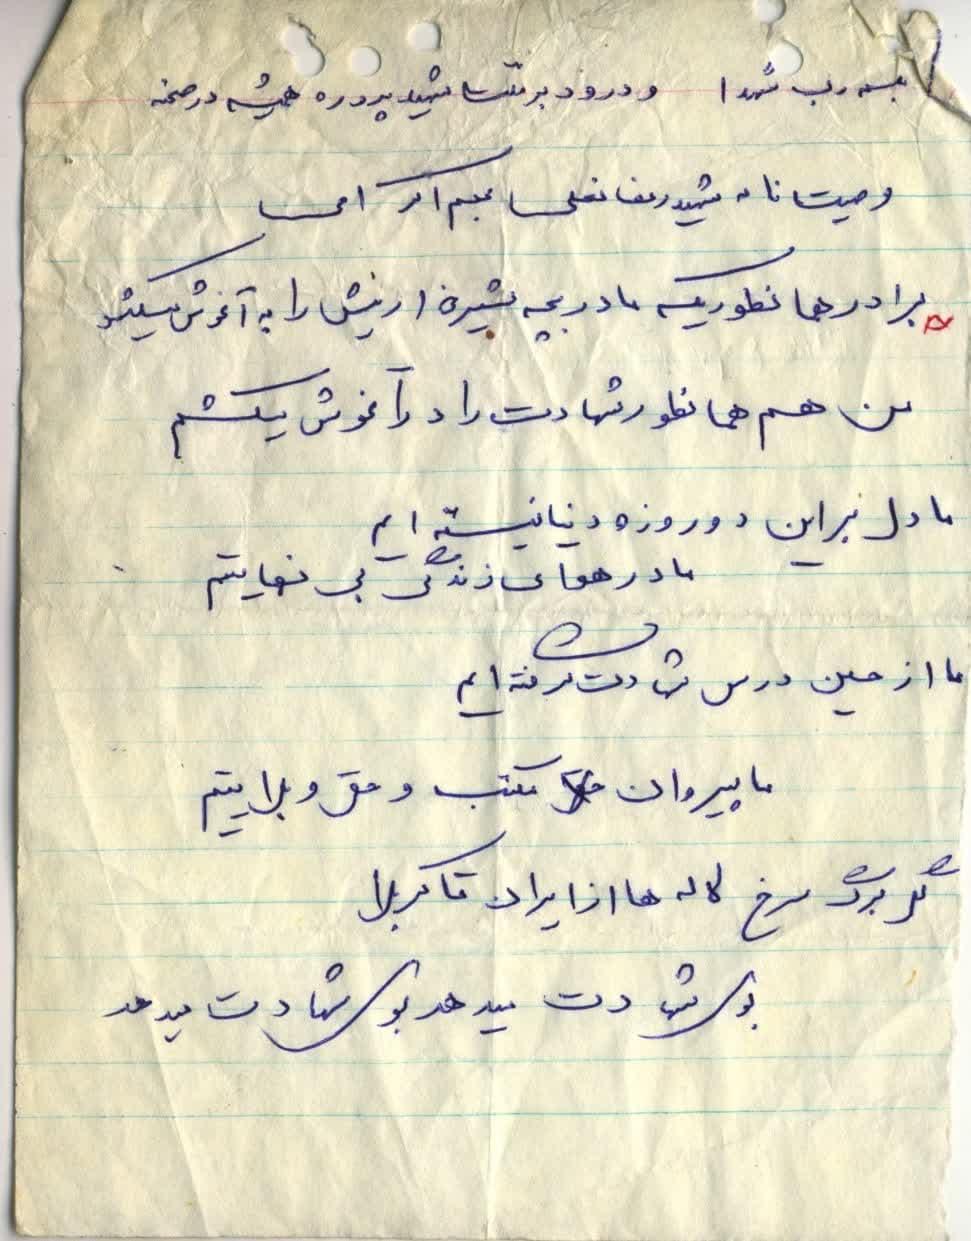 بسمه رب شهدا و درود بر ملت شهید پرور همیشه در صحنه
وصیت نامه شهید رمضانعلی
برادر همانطوریکه مادر بچه شیرین را به آغوش میکشد
من هم همانطور شهادت را در آغوش میکشم
ما دل بر این دو روزه دنیا نبسته ایم
ما در هوای زندگی بی نهایتیم
ما از حسین درس شهادت گرفته ایم
ما پیروان مکتب و حق و بلاییتیم
گل برگ سرخ لاله ها از ایران تا کربلا
بوی شهادت میدهد بوی شهادت میدهد